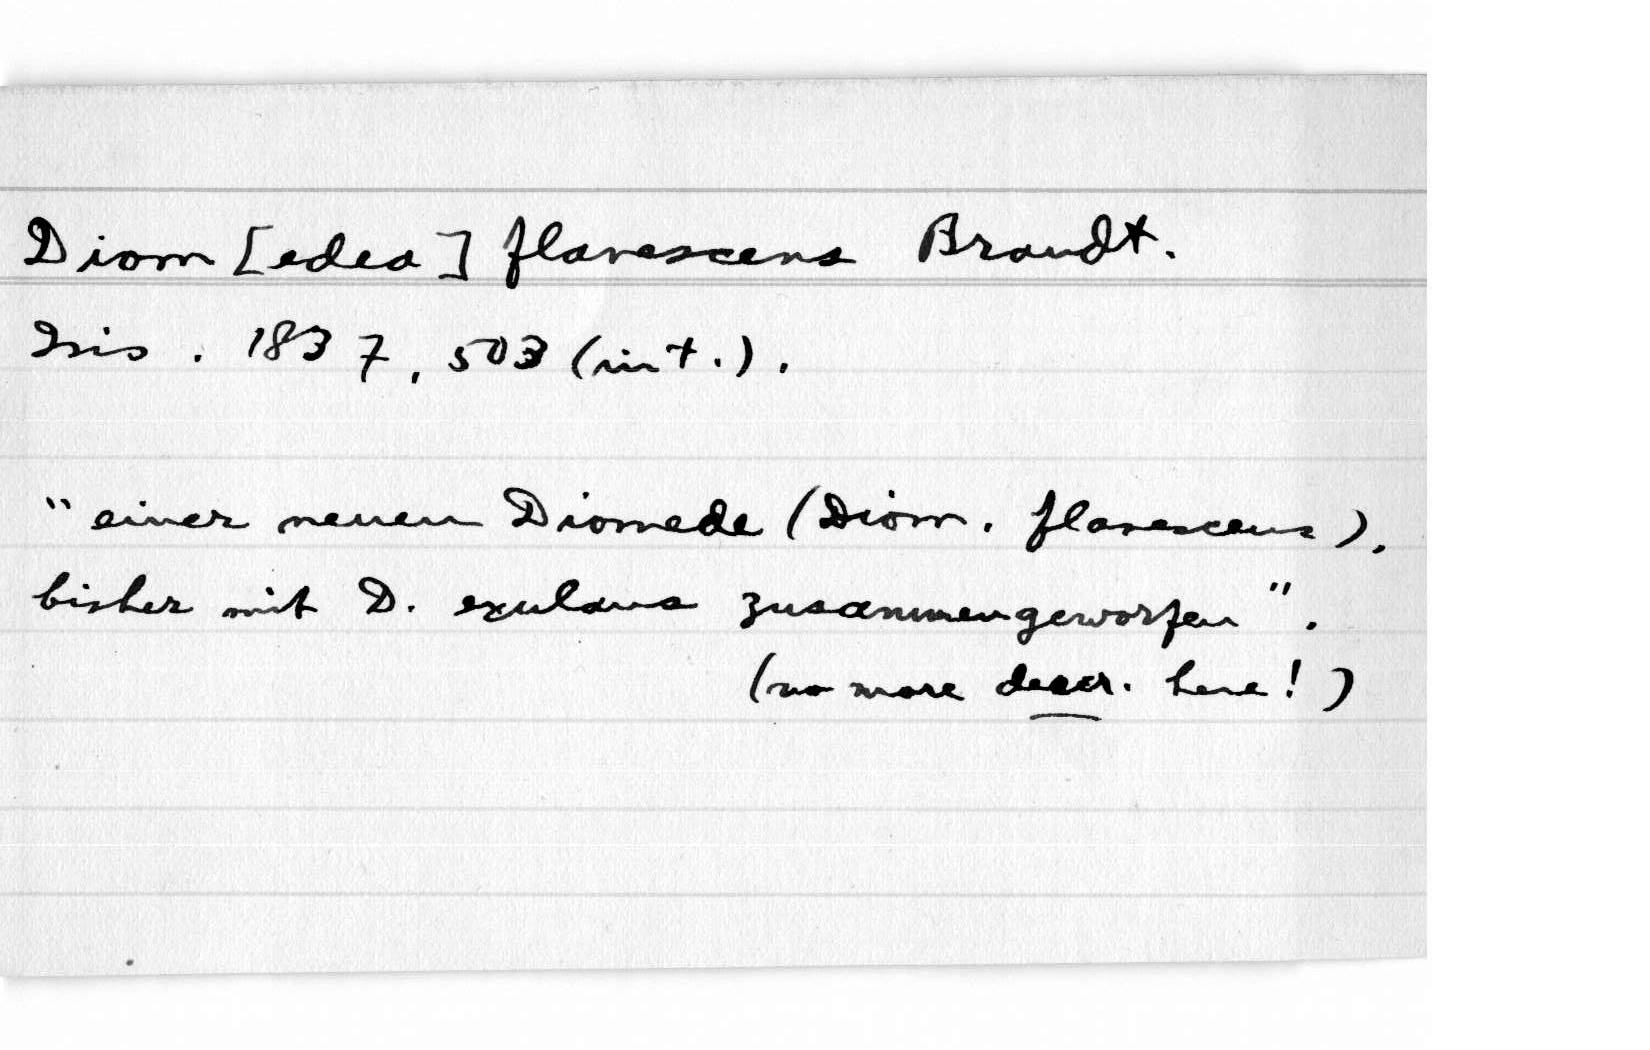 Diom [edea] flavescens Brandt.
Isis. 1837, 503 (int.).
"einer neuen Diomede (Diom. flavescens),
bisher mit D. exulans zusammengeworfen".
(no more descr. here!)